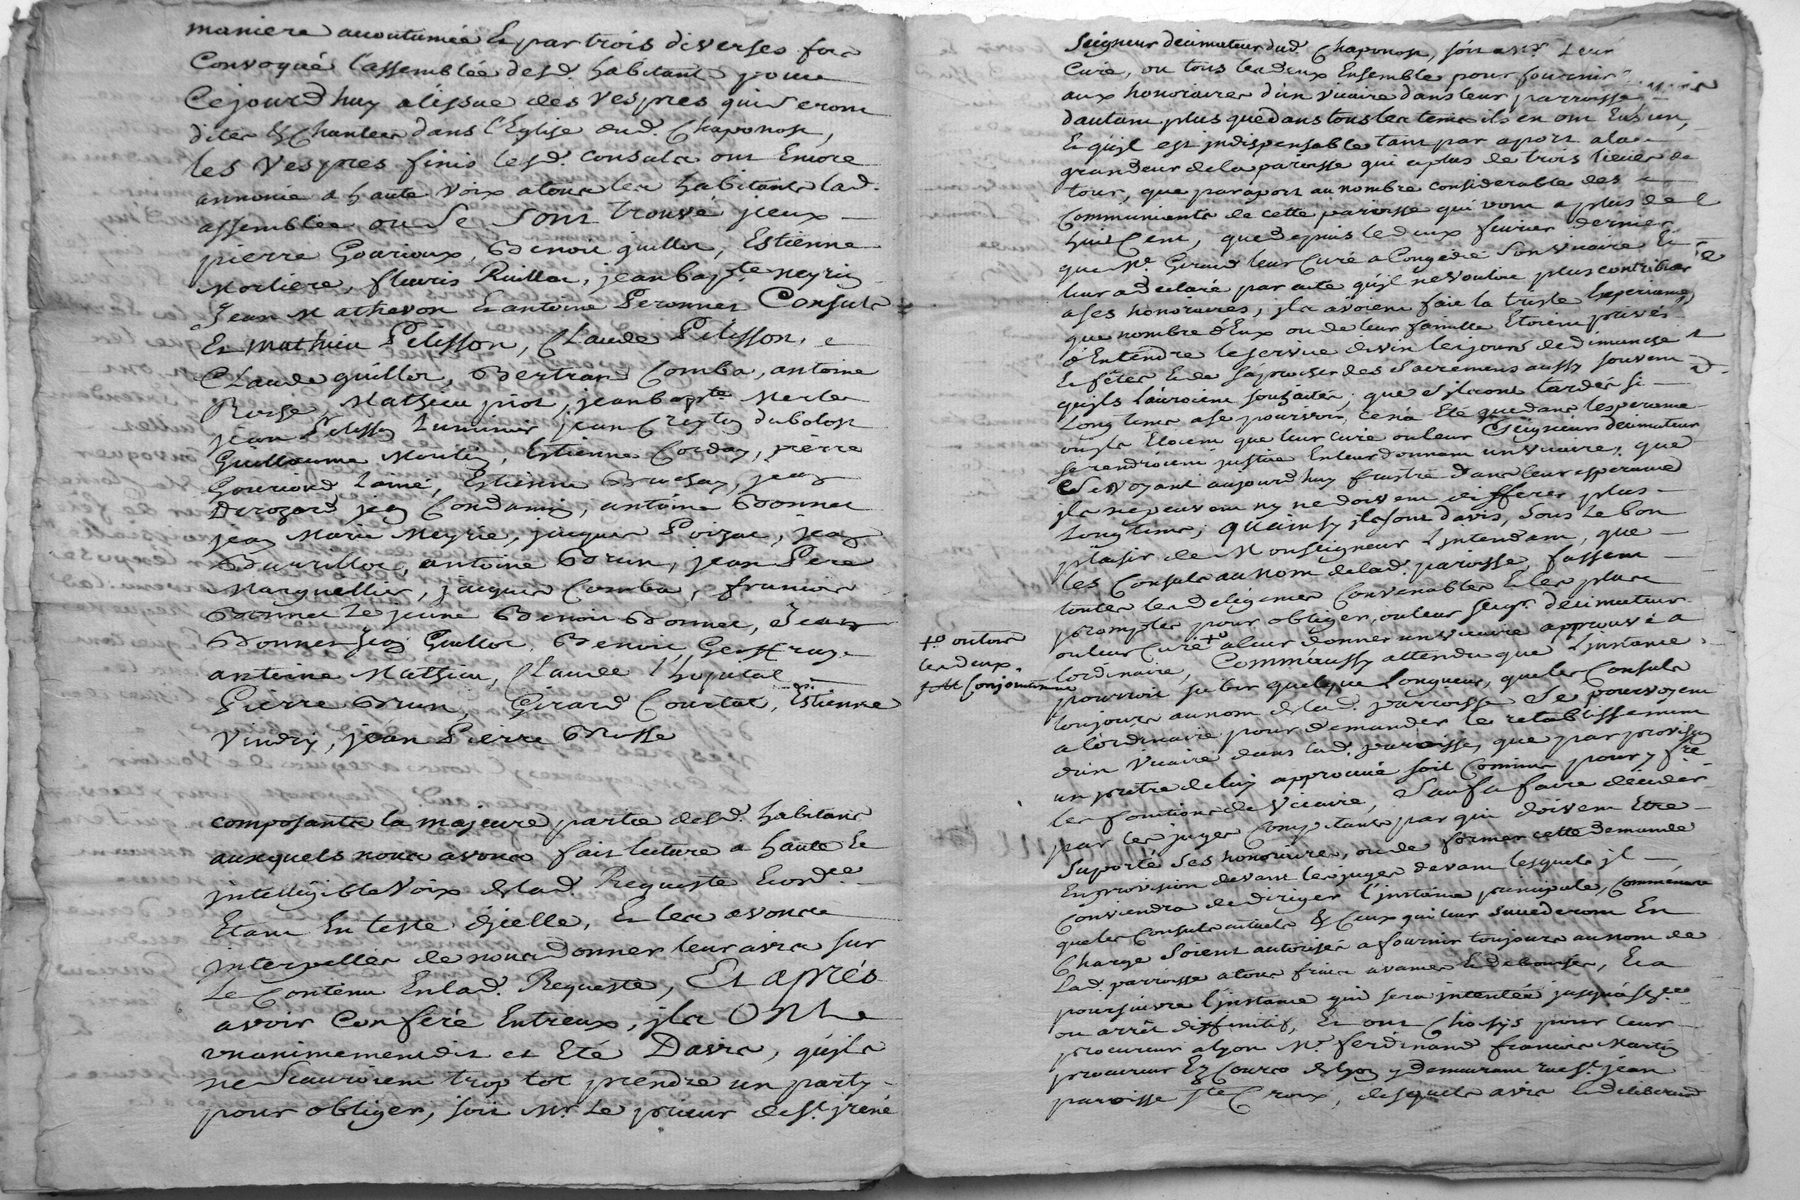 maniere accoutumée & par trois diverses fois
Convoqué l'assemblée desd. habitants pour
Cejourd'huy a l'issue des Vespres qui seront
dites & Chantées dans l'Eglise dud. Chaponost,
les Vespres finis lesd. consuls ont Encore
annoncé a haute voix a tous les habitants lad.
assemblée ou se sont trouvé sieux
pierre Gourioux, Benoit guillot, Estienne
Morliere, fleuris Ruillat, jean bapte. neyrin
Jean Mathevon & antoine Peronnet Consuls
Et Mathieu Pelisson, Claude Pelisson,
Claude guillot, Bertran Comba, antoine
Mathieu piot, jean bapte. Merle
jean Pelisson Luminier jean dubolost
Guillaume Morlin, Estienne Corday, pierre
Gouriond Lainé, Estienne Bruchay, jean
jean Condamin, antoine Bonnet
jean Marie Meyrie, jacques Poizat, jean
antoine Brun, jean Pere
Marquellier, jacques Comba, francois
Bonnet Le jeune Benoit Bonnet, Jean
Bonnet jean Guillot Benoit Geoffray
antoine Mathieu, Claude l'hopital
Pierre Brun, Girard Courtet, Estienne
Vindry, jean Pierre Brosse
composants la majeure partie desd. habitans
auxquels nous avons fait lecture a haute &
intelligible voix de lad. Requeste & ordce.
Etant En teste d'jcelle, & les avons
interpellés de nous donner leur avis sur
Le Contenu En lad. Requeste, Et après
avoir Conferé Entreux, jls Ont
unanimement dit et Eté Davis, qu'jls
ne Scauroient trop tot prendre un party
pour obliger, soit Mr. Le prieur de St. jrené
Seigneur decimateur dud. Chaponost, soit aud. sr. Leur
Curé, ou tous les deux Ensemble pour fournir
aux honoraires d'un vicaire dans leur parroisse
dautant plus que dans tous les tems ils en ont Eu un,
& qu'jl est indispensable tant par aport a la
grandeur de la paroisse qui a plus de trois lieues de
tour, que par aport au nombre considerable des
Communiants de cette paroisse qui vont a plus de
huit Cent, que depuis le deux fevrier dernier
que Mr. Giraud leur Curé a Congedié son vicaire &
leur a declaré par acte qu'jl ne vouloit plus contribuer
a ses honoraires, jls avoient fait la triste Experience,
que nombre d'Eux ou de leur famille Etoient privés
d'Entendre le service divin les jours de dimanche
& fêtes & de saprocher des sacremens aussy souvent
qu'jls l'auroient souhaités; que s'jls ont tardés si
Long tems a se pourvoir, ce n'a Eté que dans l'esperance
ou jls Etoient que leur curé ou leur Seigneur decimateur
se rendroient justice En leur donnant un vicaire, que
se voyant aujourd'huy frustré dans leur esperance
jls ne peuvent ny ne doivent differer plus
Longtems; qu'ainsy jls sont d'avis, sous le bon
plaisir de Monseigneur L'intendant, que
les Consuls au nom de lad. paroisse, fassent
toutes les diligences Convenables & les plus
promptes pour obliger, ou leur seigr. décimateur
ou leur Curé a leur donner un vicaire approuvé a
+ ou tous
les deux
conjointement
lordinaire, Comm'aussy attendu que L'instance
pourroit subir quelque Longueur, que les Consuls
toujours au nom de lad. parroisse se pourvoyent
a lordinaire pour demander le retablissement
d'un vicaire dans lad. paroisse, que par provision
un pretre de luy approuvé soit Commis pour y fre.
les fonctions de vicaire, Sauf a faire decider
par les juges Competants par qui doivent Etre
Suporté ses honoraires, ou de former cette demande
En provision devant les juges devant lesquels jl
Conviendra de diriger l'instance principale, Comm'encore
que les Consuls actuels & Ceux qui leur succederont En
Charge soient autorisés a fournir toujours au nom de
lad. parroisse a tous frais avances & deboursés, & a
poursuivre l'instance qui sera intentée jusqu'a sce.
ou arrêt diffinitif, Et ont Choisy pour leur
procureur a lyon Mr. ferdinand francois Martin
procureur Ez Cours de lyon y demeurant rue St. jean
paroisse Ste. Croix, desquels avis & deliberation